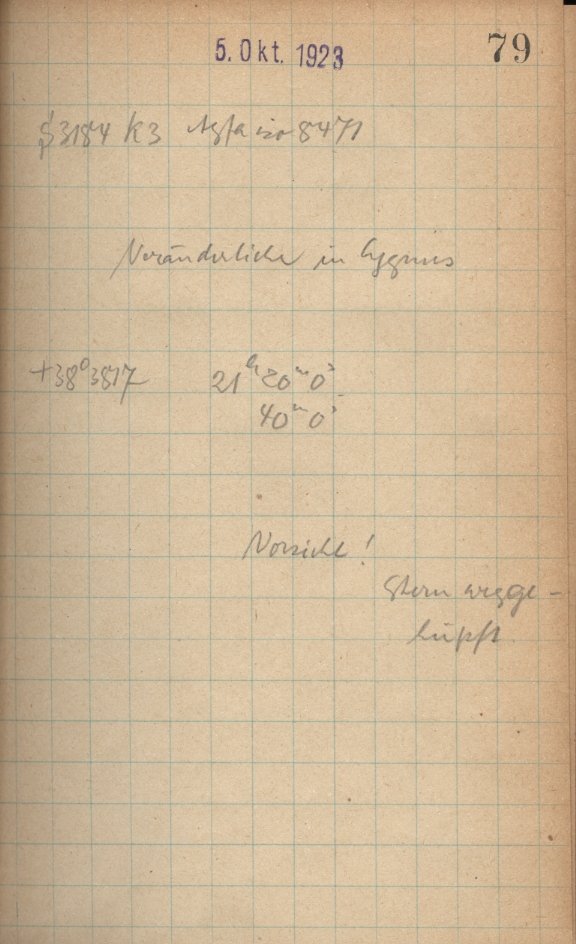 5. Okt. 1923
79
S 3184 K3 Agfa iso 8471
Veränderliche in Cygnus
+38° 3817 21ʰ 20ᵐ 0ˢ
40ᵐ 0ˢ
Vorsicht!
Stern wegge-
hüpft